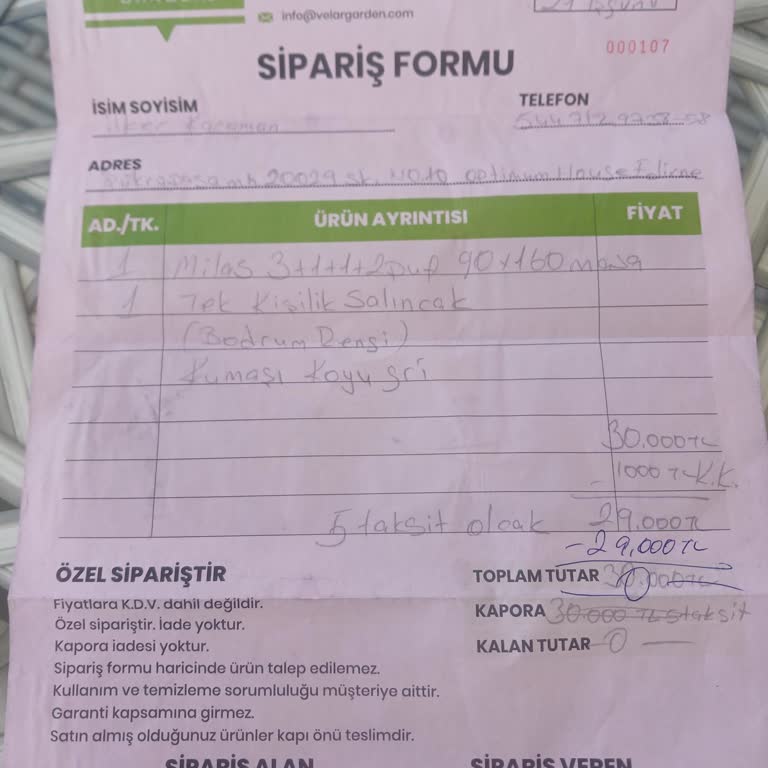 info@velargarden.com
000107
SİPARİŞ FORMU
İSİM SOYİSİM
İlker Karaman
TELEFON
ADRES
20029 sk. NO.10 optimum House Edirne
AD./TK. ÜRÜN AYRINTISI FİYAT
1 Milas 3+1+1+2puf 90x160 masa
1 Tek Kişilik Salıncak
(Bodrum Rengi)
Kumaşı Koyu gri
30.000TL
- 1000 TL K.K.
5 taksit olcak 29.000TL
-29,000TL
ÖZEL SİPARİŞTİR
TOPLAM TUTAR 30.000TL 0
Fiyatlara K.D.V. dahil değildir.
KAPORA 30.000 TL 5 taksit
Özel sipariştir. İade yoktur.
Kapora iadesi yoktur.
KALAN TUTAR 0
Sipariş formu haricinde ürün talep edilemez.
Kullanım ve temizleme sorumluluğu müşteriye aittir.
Garanti kapsamına girmez.
Satın almış olduğunuz ürünler kapı önü teslimdir.
SİPARİŞ ALAN SİPARİŞ VEREN